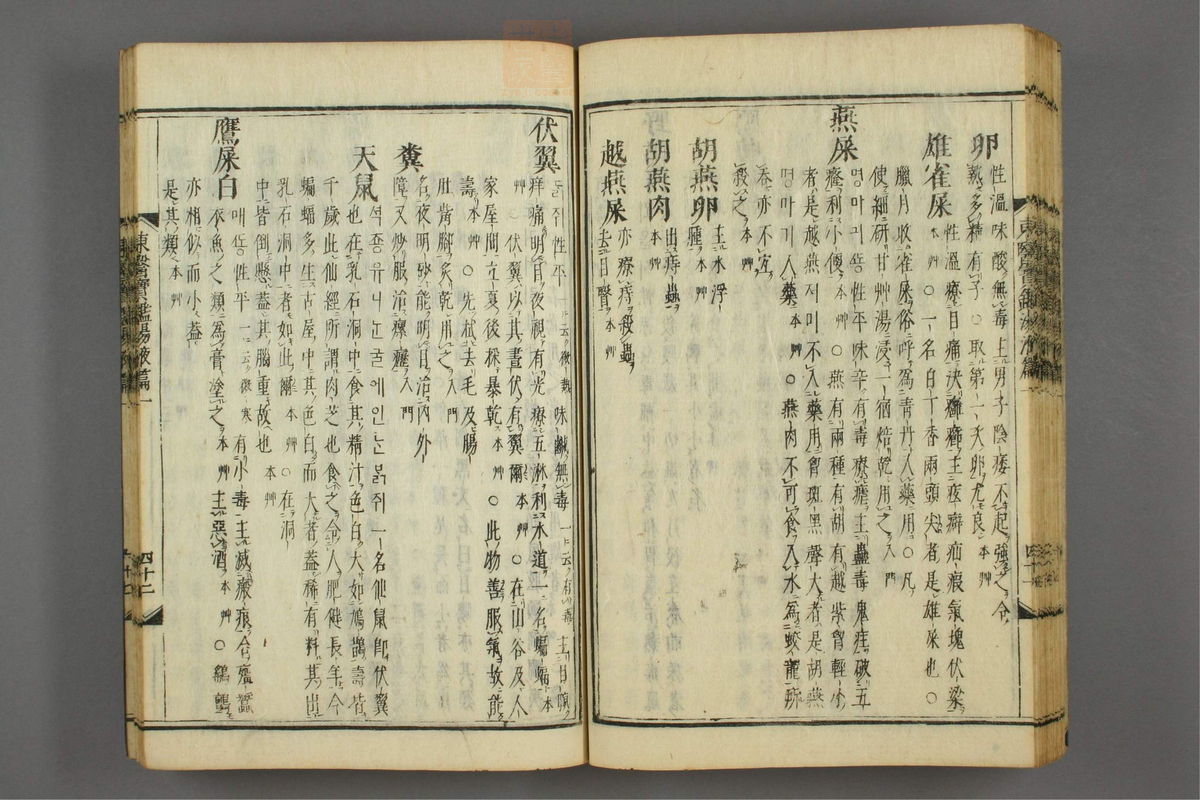 卵
性溫味酸無毒主男子陰痿不起強之令
熱多精有子○取第一次卵尤良本艸
雄雀屎
性溫療目痛決癰癤主痃癖疝瘕氣塊伏梁
○一名白丁香兩頭尖者是雄屎也○
臘月收雀屎俗呼爲靑丹入藥用○凡
使細硏甘艸湯浸一宿焙乾用之入門
燕屎
명마긔ᄯᅩᆼ性平味辛有毒療瘧主蠱毒鬼疰破五
癃利小便本艸○燕有兩種有胡有越紫胷輕小
者是越燕져비不入藥用胷斑黑聲大者是胡燕
명마기入藥本艸○燕肉不可食入水爲蛟龍所
吞亦不宜
殺之本艸
胡燕卵
主水浮
腫本艸
胡燕肉
出痔蟲
本艸
越燕屎
亦療痔殺蟲
去目瞖本艸
伏翼
ᄃᆞᆰ쥐性平一云微熱味鹹無毒一云有毒主目瞑
痒痛明目夜視有光療五淋利水道一名蝙蝠本
艸○伏翼以其晝伏有翼爾本艸○在山谷及人
家屋間立夏後採暴乾本艸○此物善服氣故能
壽本艸○先拭去毛及腸
肚觜脚炙乾用之入門
糞
名夜明砂能明目治內外
障又炒服治瘰癧入門
天鼠
셕죵유나ᄂᆞᆫ굴에인ᄂᆞᆫᄃᆞᆰ쥐一名仙鼠卽伏翼
也在乳石洞中食其精汁色白大如鳩鵲壽皆
千歲此仙經所謂肉芝也食之令人肥健長年今
蝙蝠多生古屋中其色白而大者蓋稀有料其出
乳石洞中者如此爾本艸○在洞
中皆倒懸蓋其腦重故也本艸
鷹屎白
매ᄯᅩᆼ性平一云微寒有小毒主滅瘢痕合殭蠶
衣魚之類爲膏塗之本艸主惡酒本艸○鷂鸇
亦相似而小蓋
是其類本艸
東醫寶鑑湯液篇一
四十二